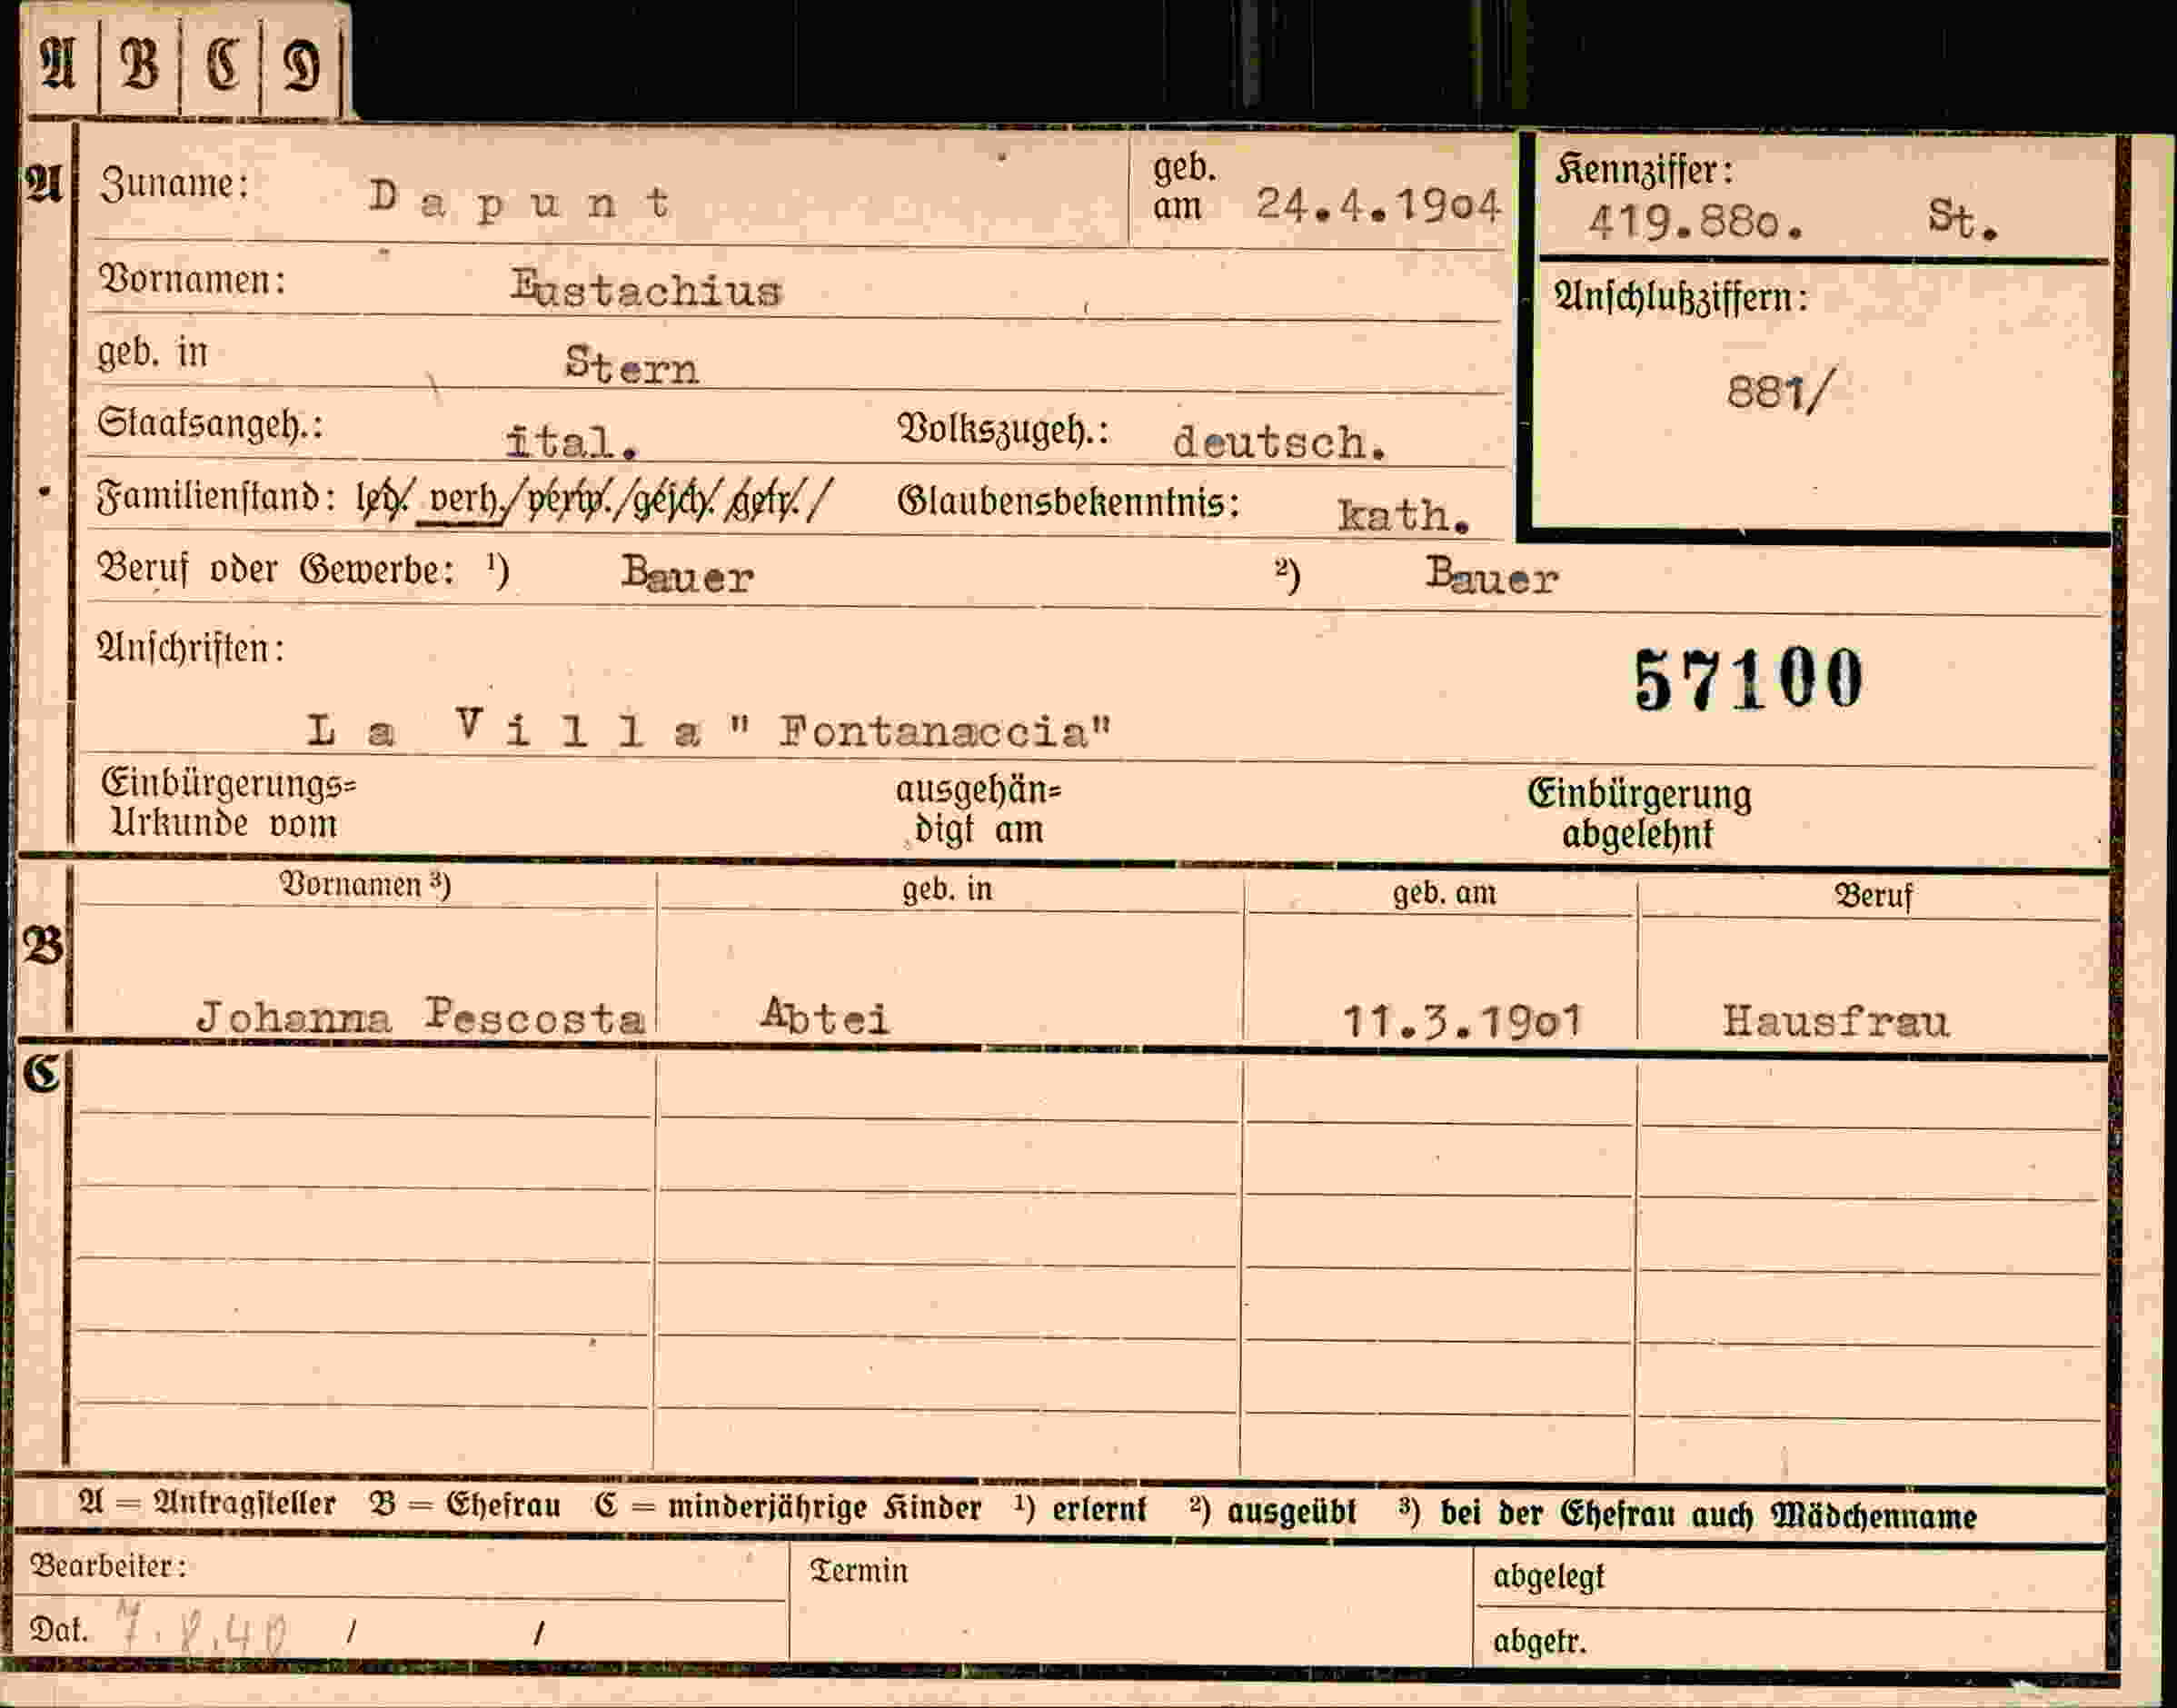 A B C D
A Zuname: Dapunt geb. am 24.4.19o4 Kennziffer: 419.88o. St.
Vornamen: Eustachius Anschlußziffern:
geb. in Stern 881/
Staatsangeh.: ital. Volkszugeh.: deutsch.
Familienstand: led./ verh./verw./gesch./getr./ Glaubensbekenntnis: kath.
Beruf oder Gewerbe: ¹) Bauer ²) Bauer
Anschriften: 57100
La Villa " Fontanaccia"
Einbürgerungs= ausgehän= Einbürgerung
Urkunde vom digt am abgelehnt
Vornamen ³) geb. in geb. am Beruf
B
Johanna Pescosta Abtei 11.3.19o1 Hausfrau
C
A = Antragsteller B = Ehefrau C = minderjährige Kinder ¹) erlernt ²) ausgeübt ³) bei der Ehefrau auch Mädchenname
Bearbeiter: Termin abgelegt
Dat. 7.8.40 / / abgetr.